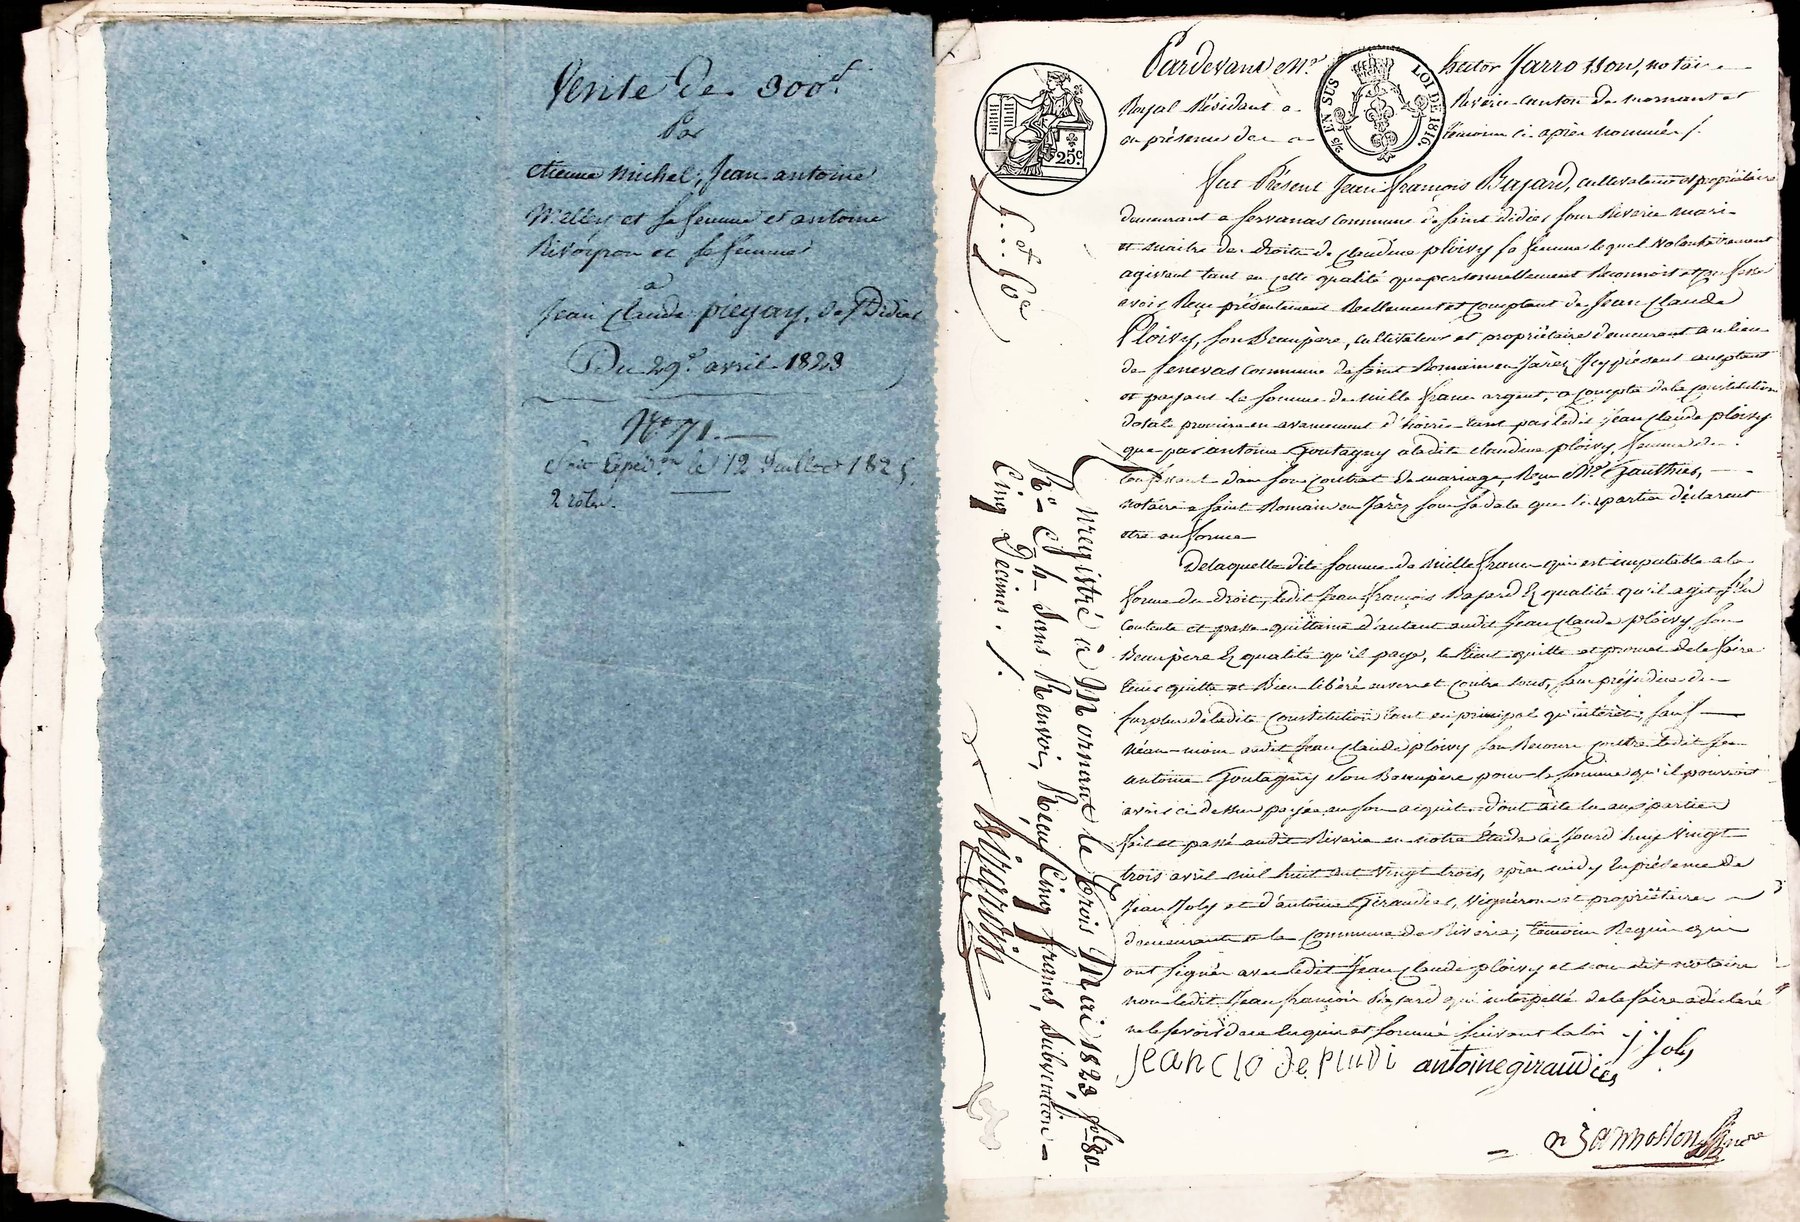 Vente de 300f.
Par
etienne Michel, Jean antoine
et sa femme et antoine
et sa femme
a
Jean Claude pieyay, de St Didier
Du 29e. avril 1823
No 71.
le 12 Juillet 1825.
2 roles.
Pardevant Me. hector Jarrosson, notaire
Royal Résidant a Riverie canton de mornant et
en présence des temoins ci après nommés
EN SUS
LOI DE 1816.
25c.
fut Présent Jean françois Bajard, cultivateur et propriétaire
demeurant a servanas commune de saint didier sous Riverie mari
et maitre des droits de Claudine ploivy sa femme lequel volontairement
agissant tant en cette qualité que personnellement Reconnoit et confesse
avoir Reçu présentement Reellement et comptant de Jean Claude
Ploivy, son Beaupère, cultivateur et propriétaire demeurant au lieu
de senevas commune de saint Romain en Jarès, Icy présent acceptant
et payant la somme de mille francs argent, a compte de la constitution
dotale promise en avancement d'hoirie tant par ledit Jean Claude ploivy
que par antoine Goutagny a ladite claudine ploivy, femme du
confessant dans son contrat de mariage, Reçu Me. Gauthier,
notaire a saint Romain en Jarès sous sa date que les parties déclarent
etre en forme
De laquelle dite somme de mille francs qui est imputable a la
forme du droit, ledit Jean françois Bajard En qualité qu'il agit s'en
contente et passe quittance d'autant audit Jean Claude ploivy, son
Beaupère En qualité qu'il paye, le tient quitte et promet de le faire
tenir quitte et Bien libéré envers et contre tous, sans préjudice du
surplus de ladite constitution tant en principal qu'intérêts, sauf
néan-moins audit Jean Claude ploivy son Recours contre ledit
antoine Goutagny son Beaupère pour la somme qu'il pourroit
avoir ci dessus payée en son acquit dont acte lu aux parties
fait et passé audit Riverie en notre Etude ce jourd'huy vingt
trois avril mil huit cent vingt trois, après midy En présence de
Jean Joly et d'antoine Giraudier, vignerons et propriétaires
demeurants en la commune de Riverie, temoins Requis qui
ont signés avec ledit Jean Claude ploivy et nous dit notaire
non ledit Jean françois Bajard qui interpellé de le faire a déclaré
ne le savoir de ce Enquis et sommé suivant la loi
Jean Clo de Pluvi antoine giraudier J. Joly
Jarrosson
Enregistré à Mornant le trois Mai 1823, fo. 80
Ro. Ce. 4 Sans Renvoi, Reçu Cinq francs, Subvention
Cinq Décimes.
5f 50c